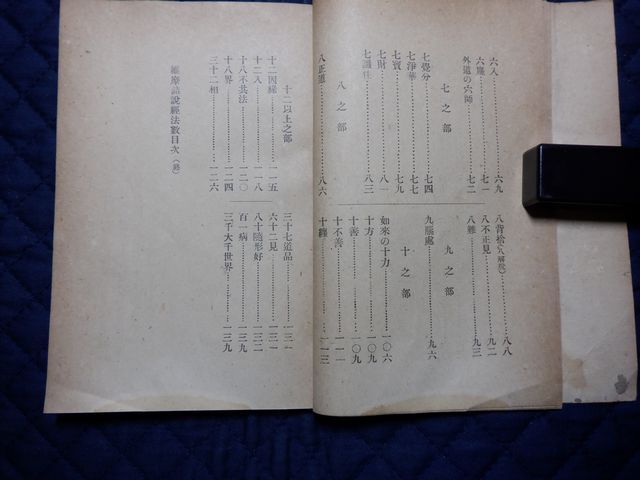 六入……六九
六塵……七一
外道の六師……七二
七之部
七覺分……七四
七淨華……七七
七寶……七九
七財……八一
七識住……八三
八之部
八正道……八六
八背捨(八解脱)……八八
八不正見……九二
八難……九三
九之部
九惱處……九六
十之部
如來の十力……一〇六
十方……一〇九
十善……一〇九
十不善……一一一
十纏……一一三
十二以上之部
十二因緣……一一五
十二入……一一八
十八不共法……一二〇
十八界……一二四
三十二相……一二六
三十七道品……一三一
六十二見……一三一
八十隨形好……一三二
百一病……一三九
三千大千世界……一三九
維摩詰說經法數目次(終)